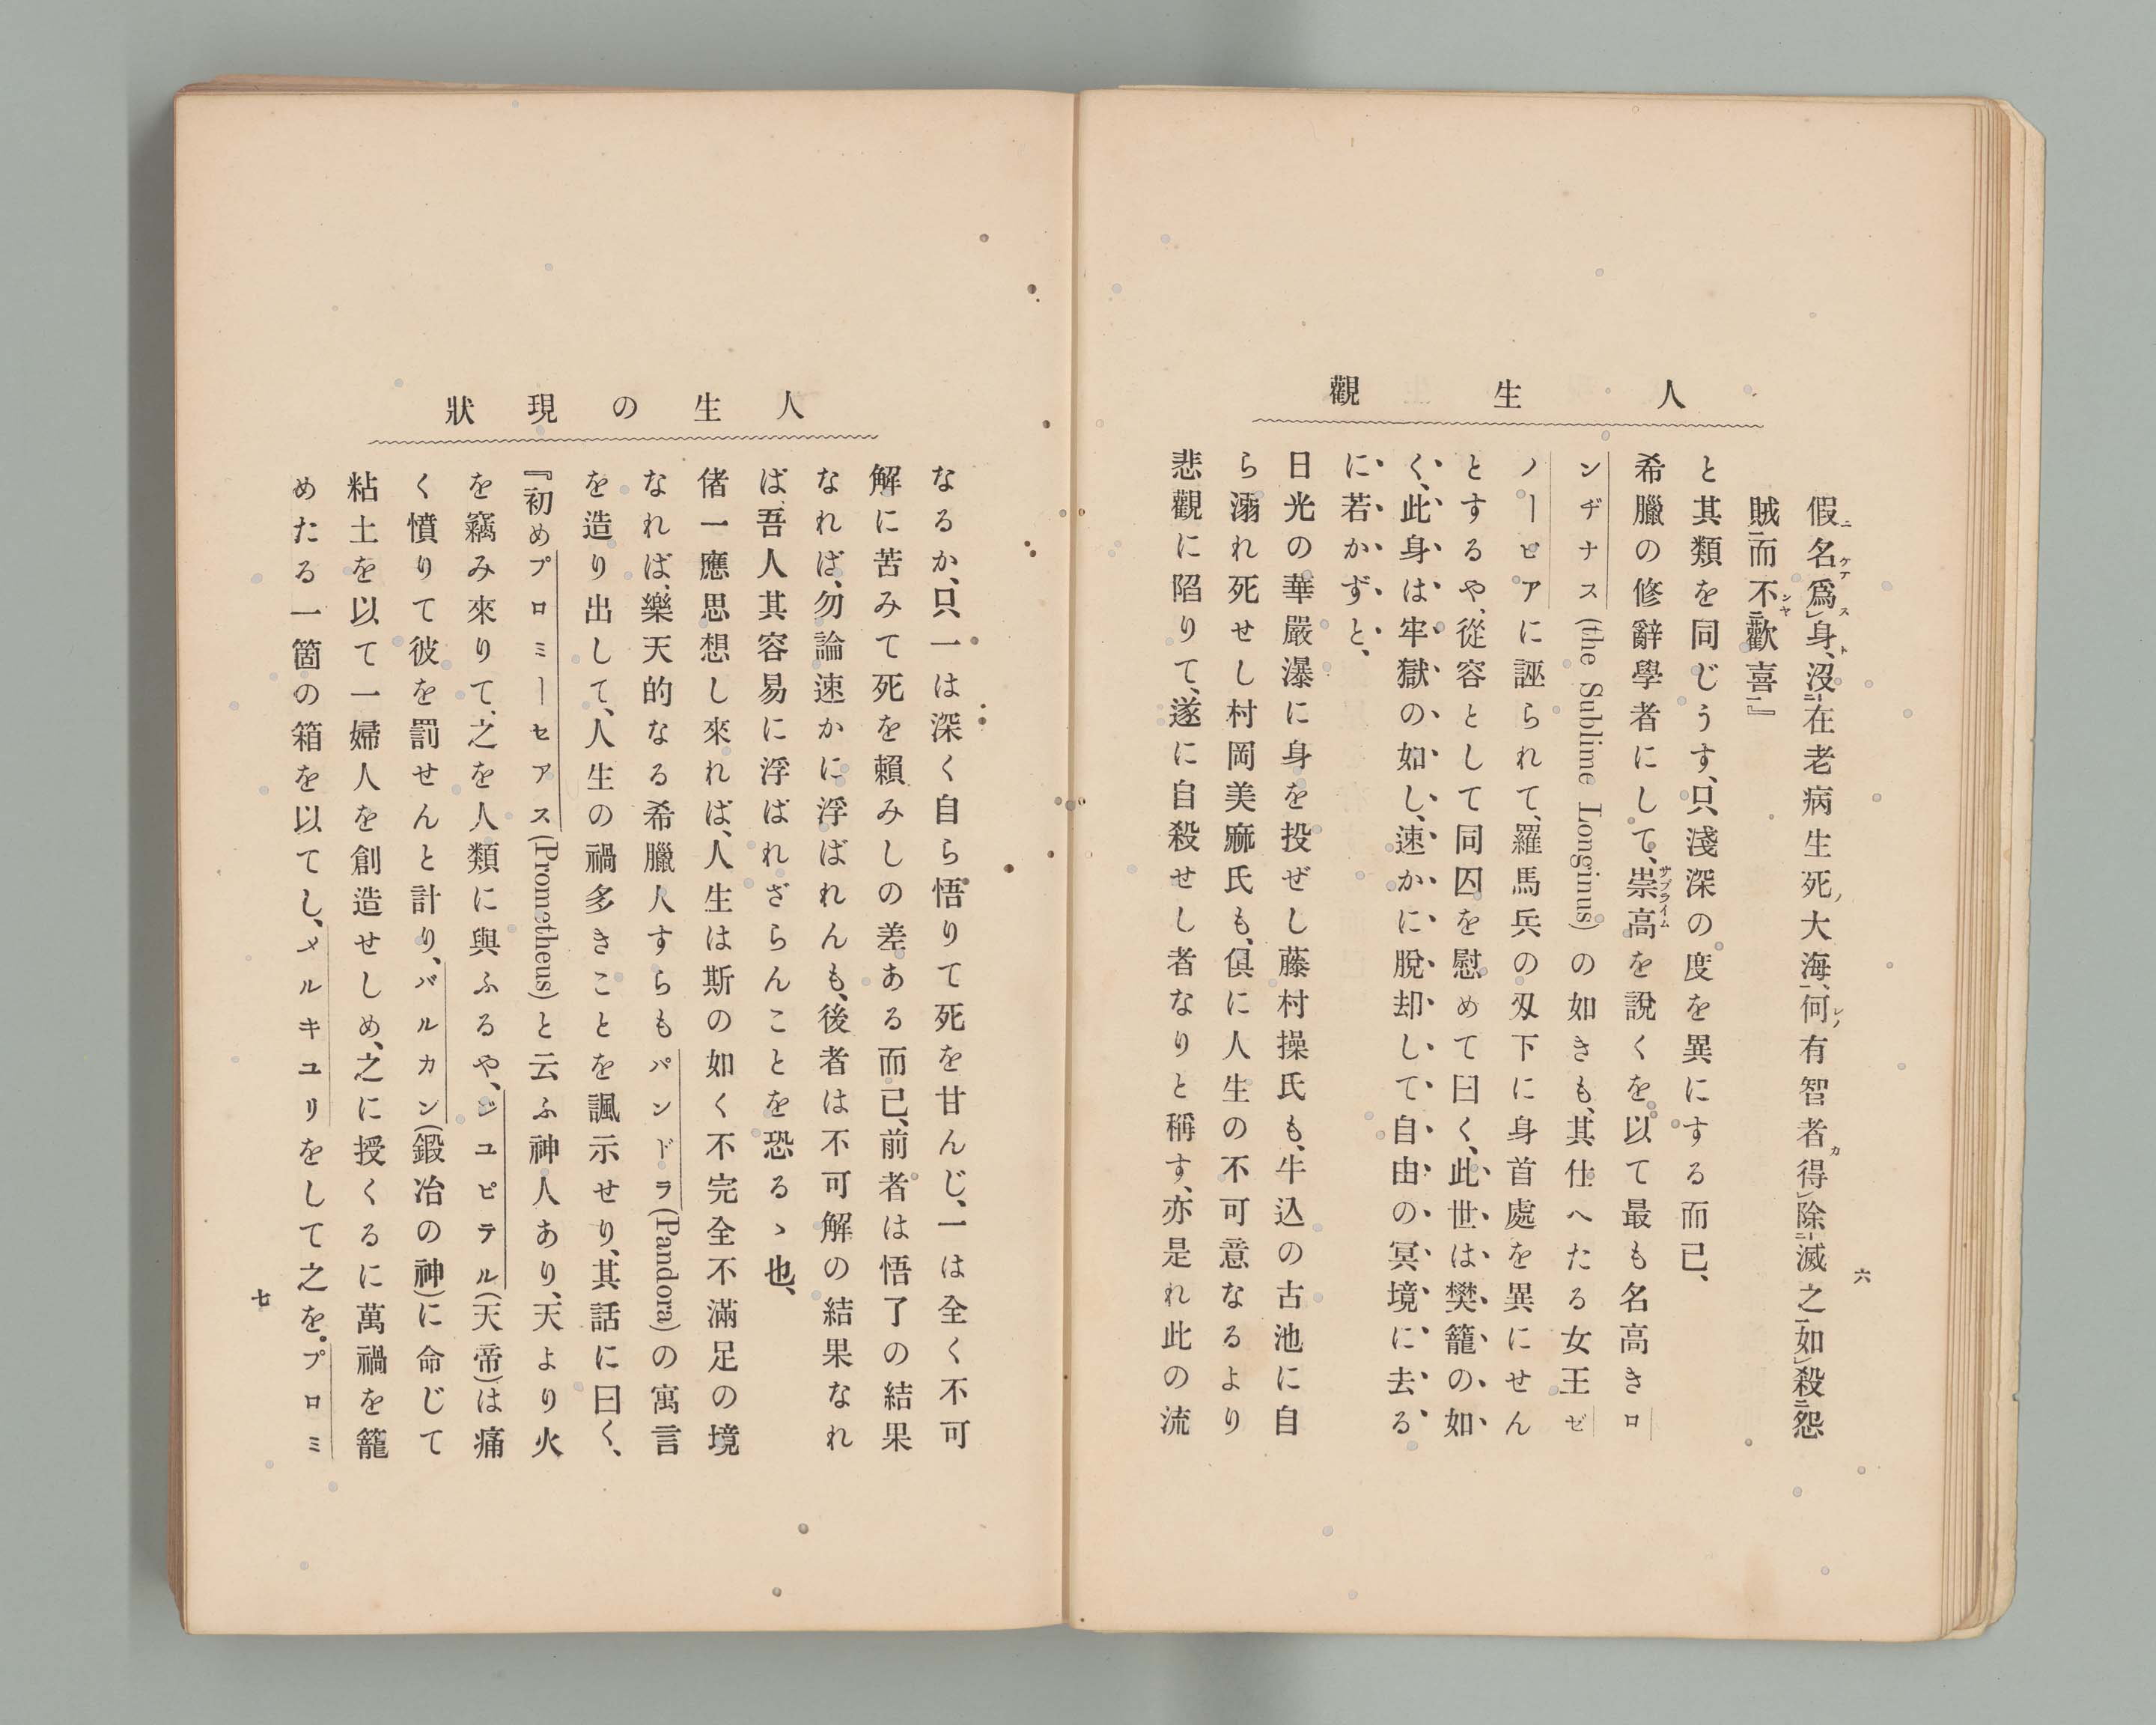 人生觀
假名爲身、沒在老病生死大海、何有智者得除滅之如殺怨
賊而不歡喜』
と其類を同じうす、只淺深の度を異にする而已、
希臘の修辭學者にして、崇高を說くを以て最も名高きロ
ンヂナス(the Sublime Longinus)の如きも、其仕へたる女王ゼ
ノーピアに誣られて、羅馬兵の刄下に身首處を異にせん
とするや、從容として同囚を慰めて曰く、此世は樊籠の如
く、此身は牢獄の如し、速かに脫却して自由の冥境に去る
に若かずと、
日光の華嚴瀑に身を投ぜし藤村操氏も、牛込の古池に自
ら溺れ死せし村岡美麻氏も、俱に人生の不可意なるより
悲觀に陷りて、遂に自殺せし者なりと稱す、亦是れ此の流
六
人生の現狀
なるか、只一は深く自ら悟りて死を甘んじ、一は全く不可
解に苦みて死を賴みしの差ある而已、前者は悟了の結果
なれば、勿論速かに浮ばれんも、後者は不可解の結果なれ
ば、吾人其容易に浮ばれざらんことを恐るゝ也、
偖一應思想し來れば、人生は斯の如く不完全不滿足の境
なれば、樂天的なる希臘人すらもパンドラ(Pandora)の寓言
を造り出して、人生の禍多きことを諷示せり、其話に曰く、
『初めプロミーセアス(Prometheus)と云ふ神人あり、天より火
を竊み來りて、之を人類に與ふるや、ジユピテル(天帝)は痛
く憤りて彼を罰せんと計り、バルカン(鍛冶の神)に命じて
粘土を以て一婦人を創造せしめ、之に授くるに萬禍を籠
めたる一箇の箱を以てし、メルキユリをして之を。プロミ
七